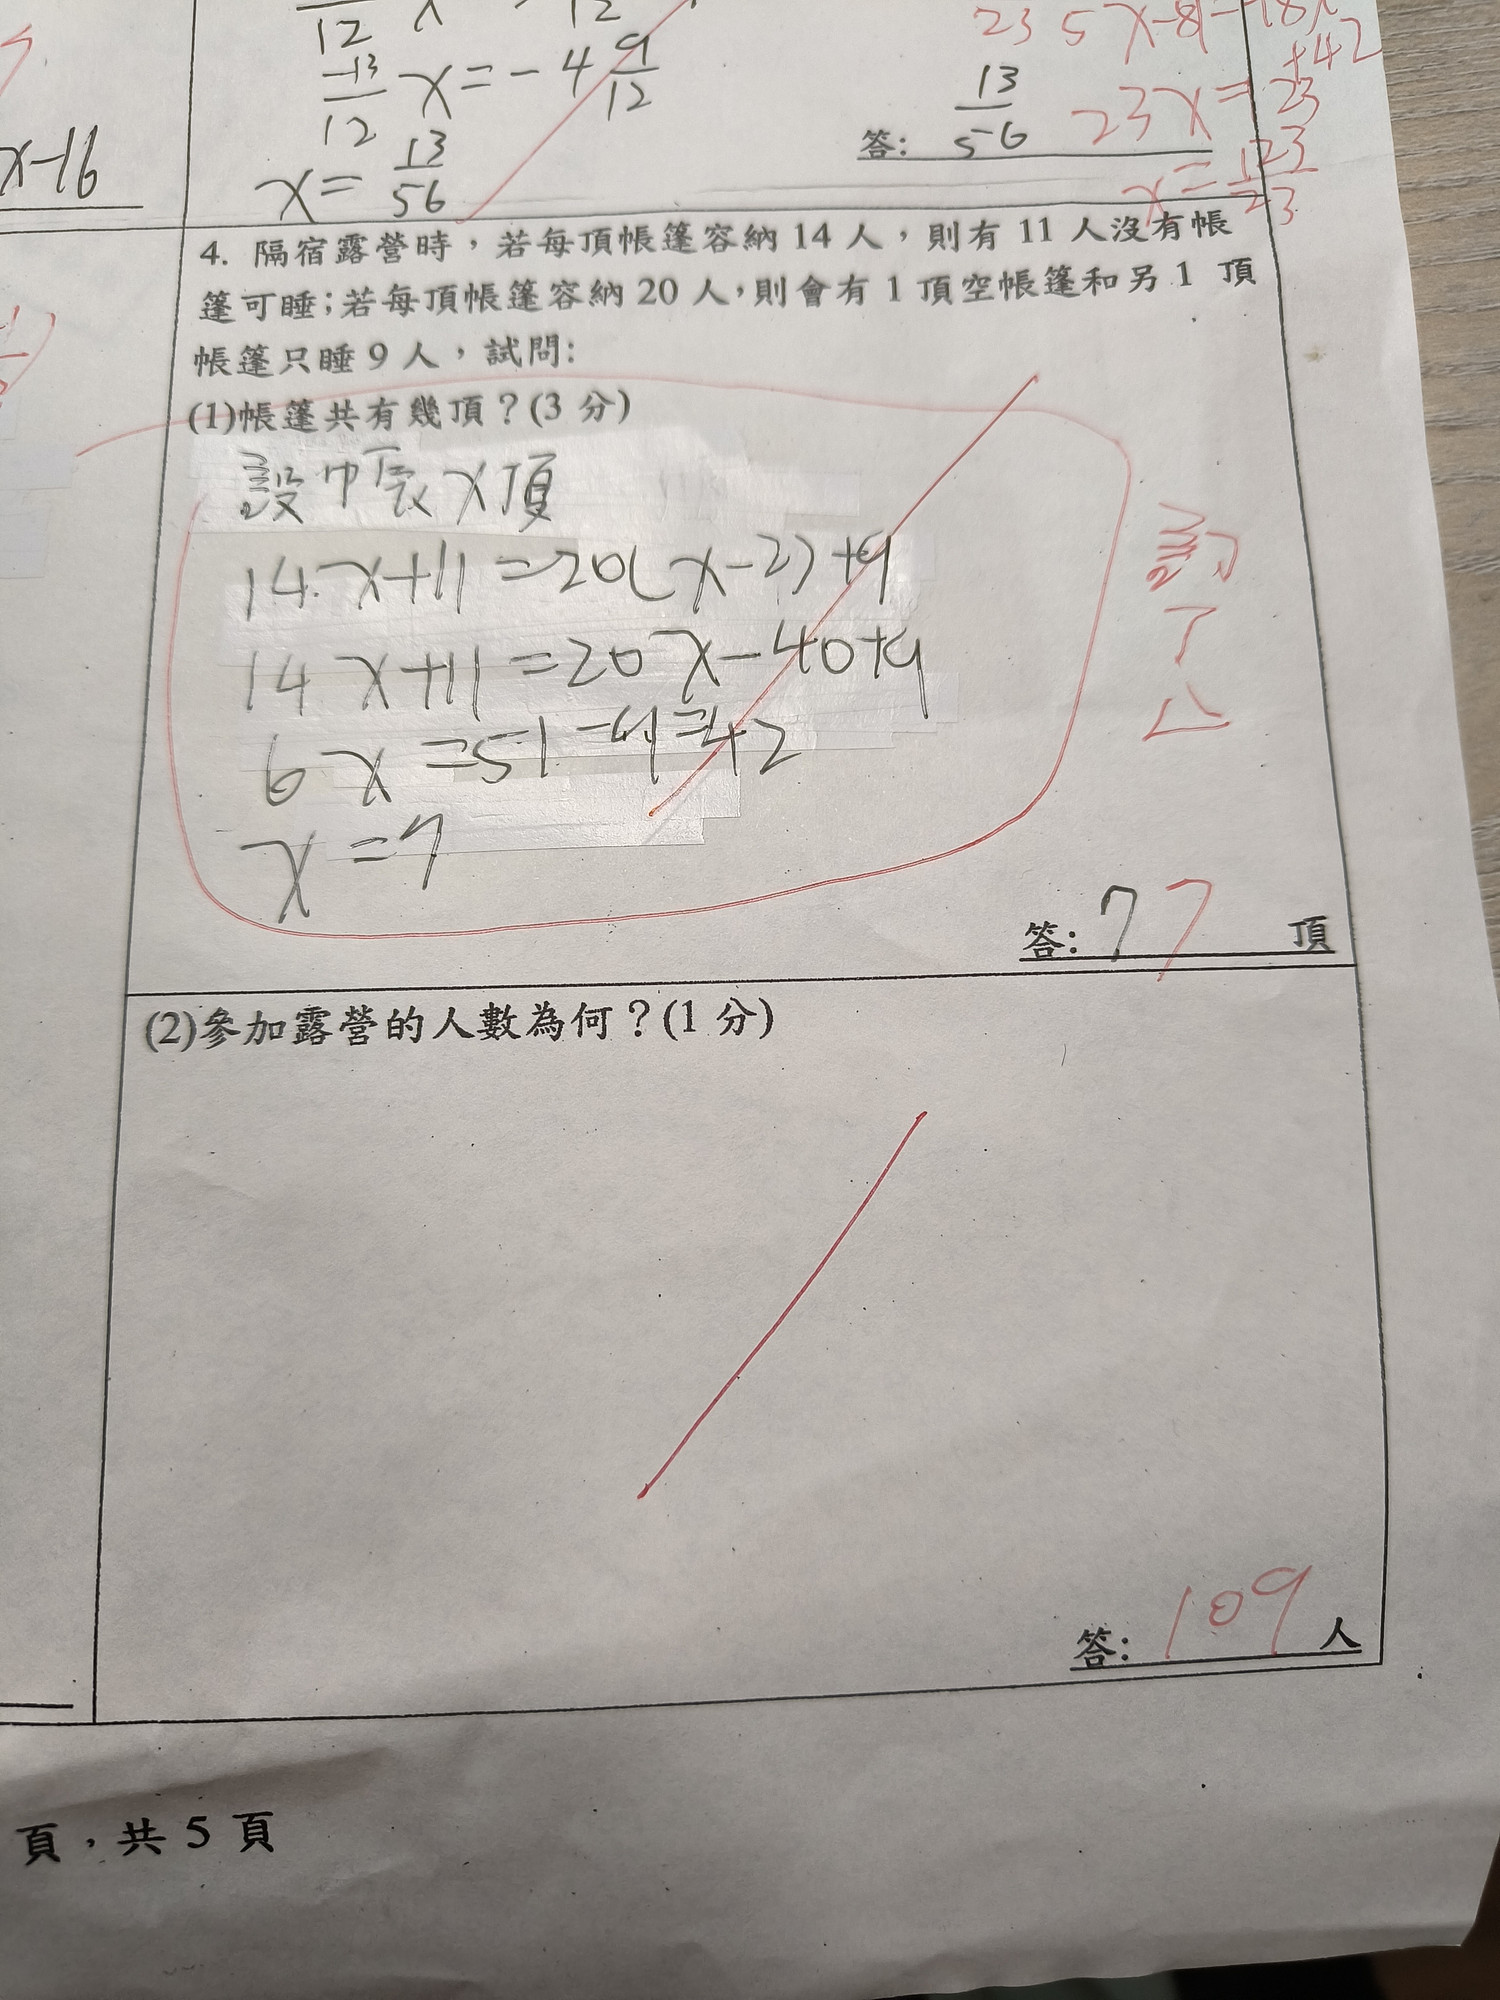 x-16
12 x 12
-13/12 x = -4 9/12
x = 13/56
答: 13/56
23 5x-81=-18x
+42
23x=
x=123/23
4. 隔宿露營時，若每頂帳篷容納 14 人，則有 11 人沒有帳
篷可睡；若每頂帳篷容納 20 人，則會有 1 頂空帳篷和另 1 頂
帳篷只睡 9 人，試問:
(1)帳篷共有幾頂？(3 分)
設帳 x 頂
14x+11=20(x-2)+9
14x+11=20x-40+9
6x=51-9=42
x=7
訂
了
答: 7 7 頂
(2)參加露營的人數為何？(1 分)
答: 109 人
頁，共 5 頁